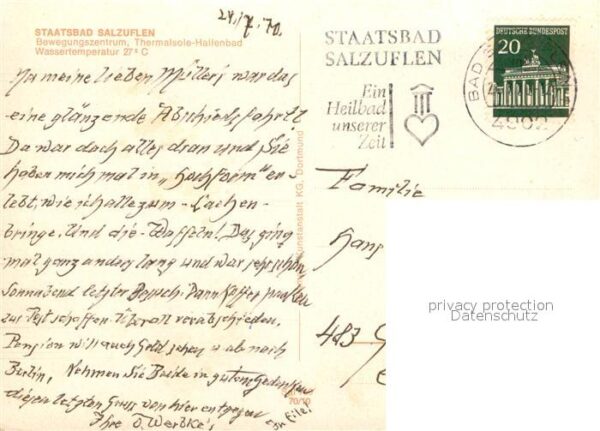 24./7.70.
STAATSBAD SALZUFLEN
Bewegungszentrum, Thermalsole-Hallenbad
Wassertemperatur 27° C
Na meine lieben Müllers war das
eine glänzende Abschiedsfahrt!
Da war doch alles dran und Sie
haben mich mal in „Hochform" er-
lebt, wie ich alle zum Lachen
bringe. Und die Waffeln! Das ging
mal ganz anders lang und war sehr schön
Sonnabend letzter Besuch. Dann Koffer packen
zur Post schaffen. Überall verabschieden.
Pension will auch Geld sehen u. ab nach
Berlin. Nehmen Sie Beide in gutem Gedenken
diesen letzten Gruss von hier entgegen
Ihre D. Werbke
In Eile!
70/10
Kunstanstalt KG, Dortmund
STAATSBAD
SALZUFLEN
Ein
Heilbad
unserer
Zeit
DEUTSCHE BUNDESPOST
20
BAD
4902
Familie
Hans
483 G
privacy protection
Datenschutz